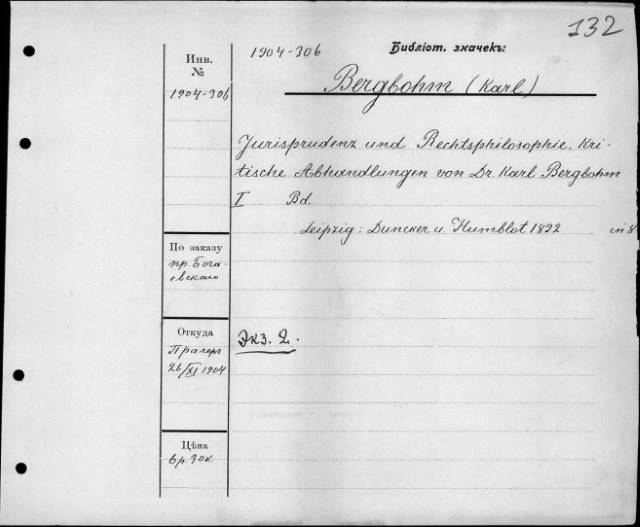 132
1904-306
Библіот. значекъ:
Инв.
№
1904-306
Bergbohm (Karl)
Jurisprudenz und Rechtsphilosophie. Kri-
tische Abhandlungen von Dr. Karl Bergbohm
I Bd.
Leipzig: Duncker u. Humblot 1892 in 8
По заказу
пр. Бога-
евскаго
Откуда
26/XI 1904
Экз. 2.
Цѣна
6 р. 30 к.